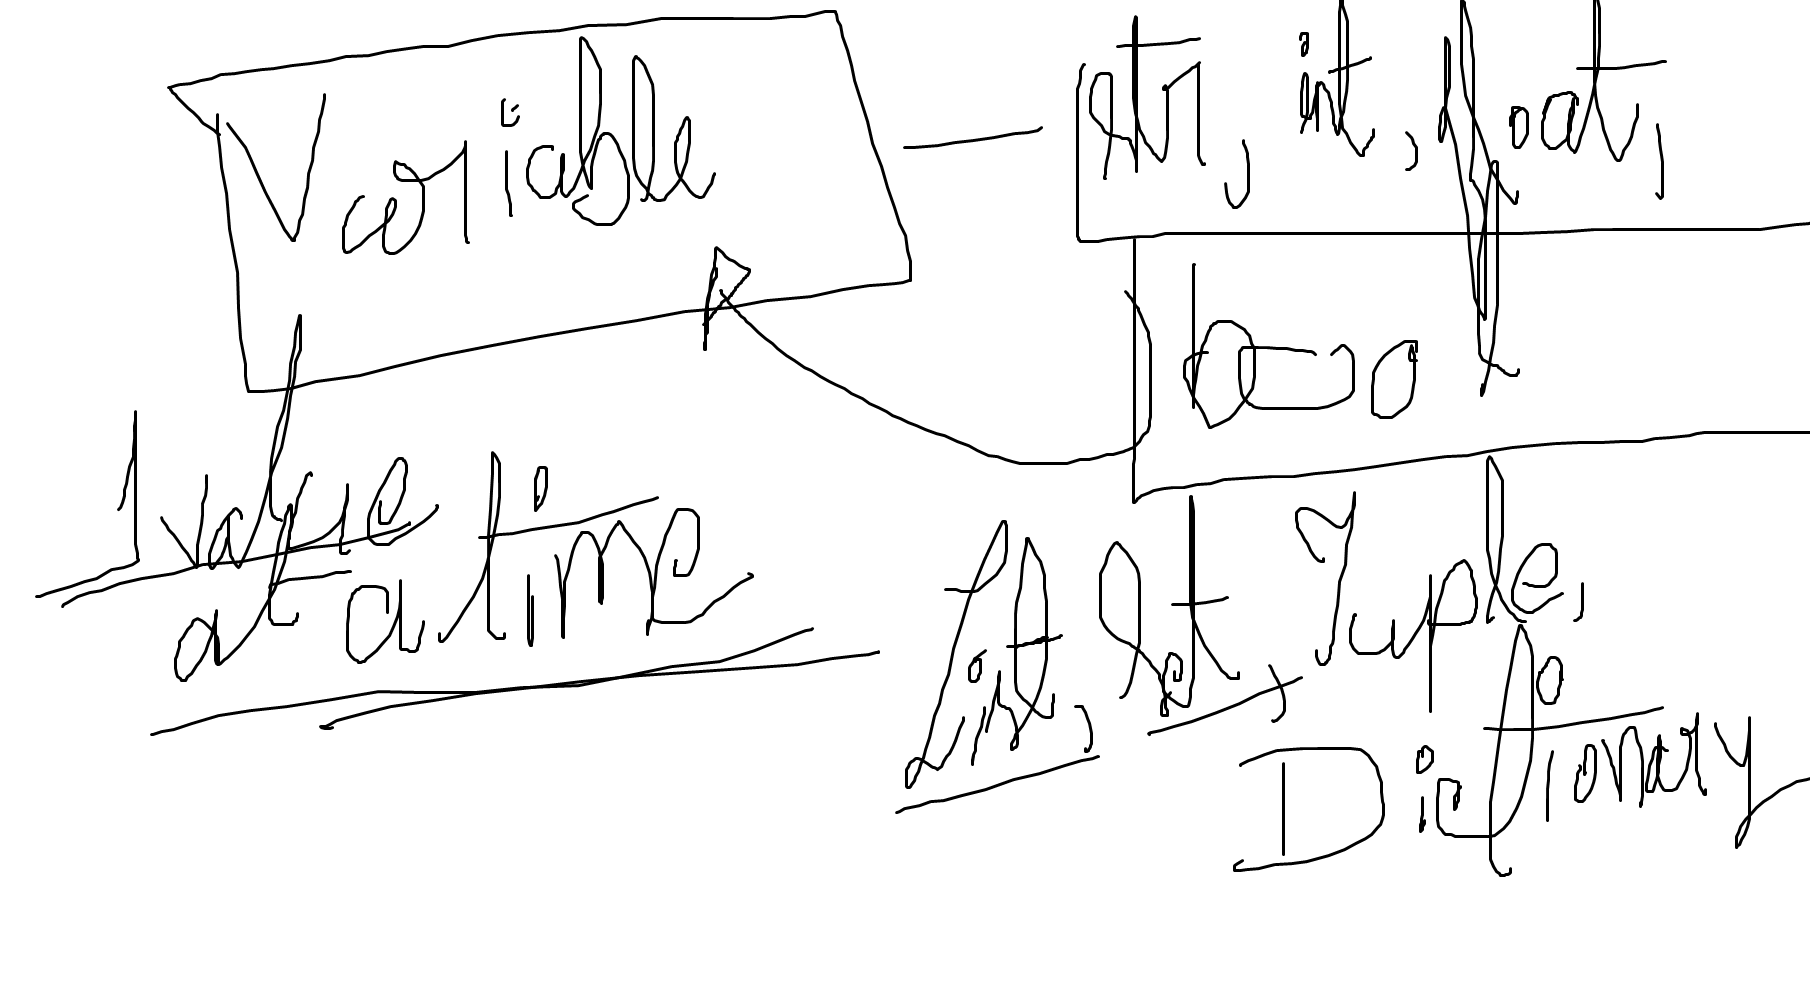 Variable
str, int, float,
bool
1 value
at a time
List, Set, Tuple,
Dictionary